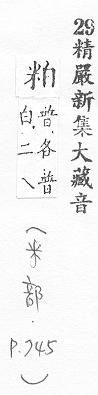 29精嚴新集大藏音
粕
普各普
白二乀
(米部.P.745)